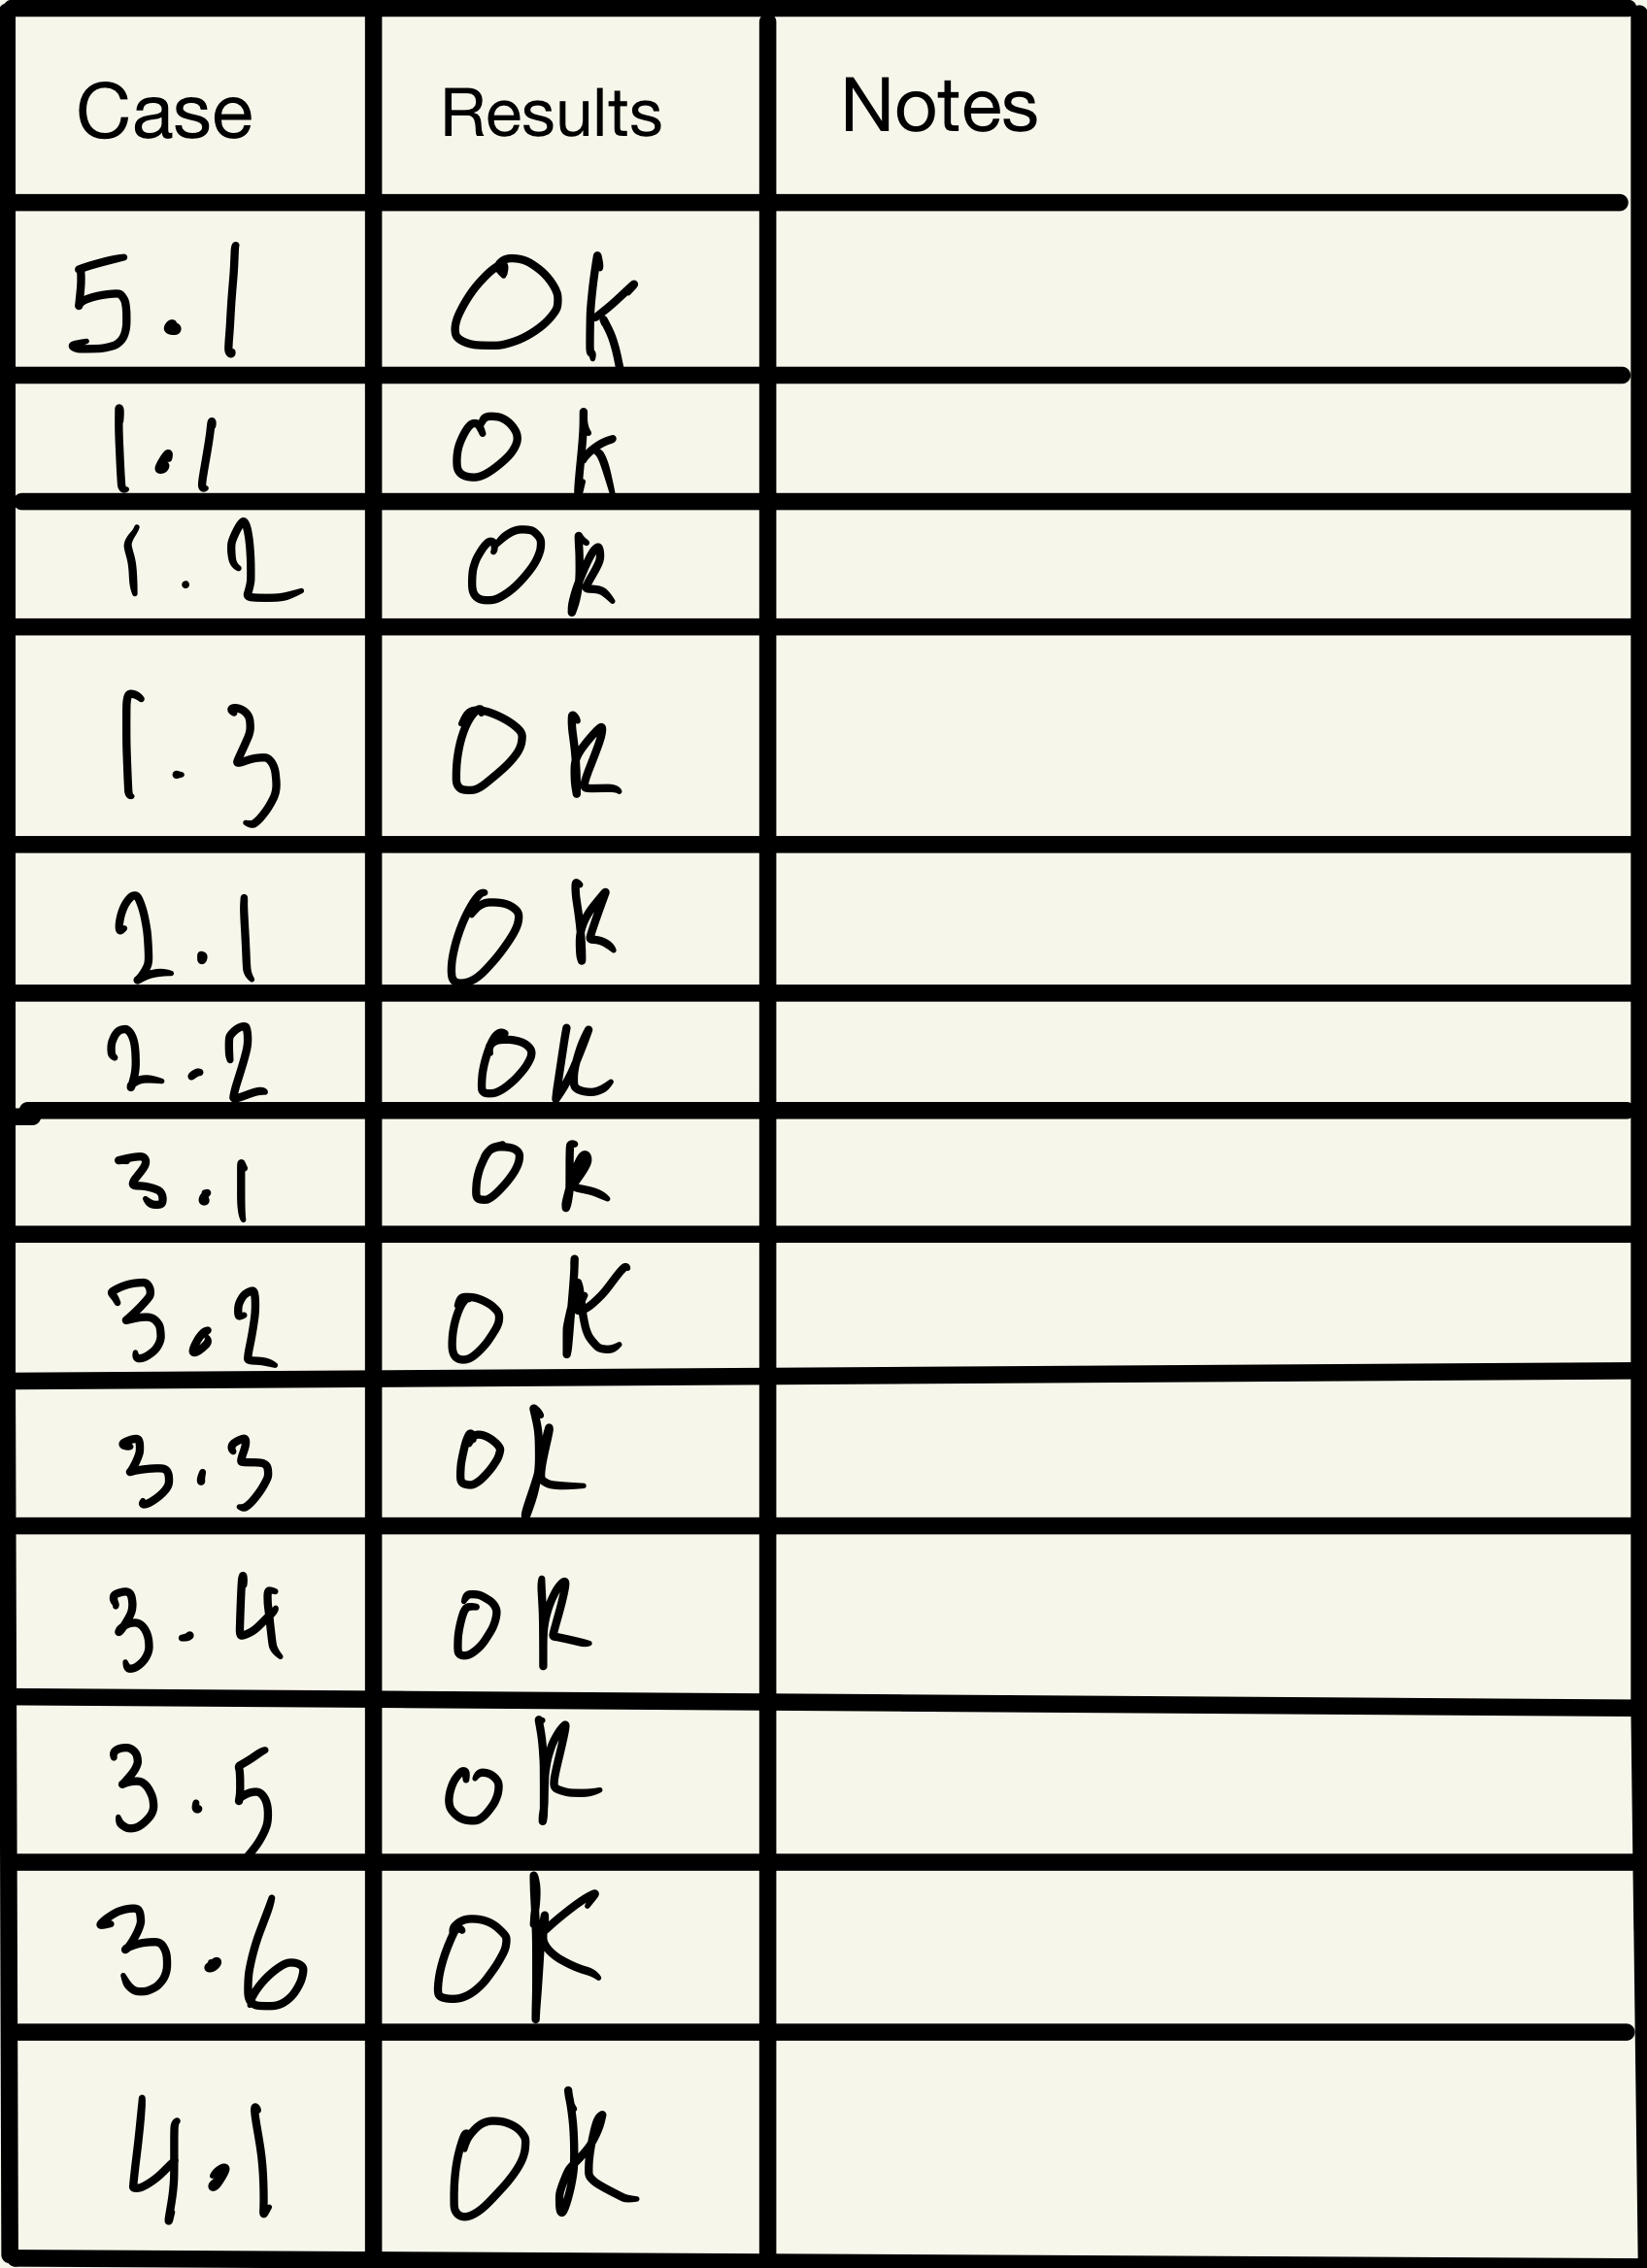 Case Results Notes
5.1 Ok
1.1 Ok
1.2 Ok
1.3 Ok
2.1 Ok
2.2 Ok
3.1 Ok
3.2 Ok
3.3 Ok
3.4 Ok
3.5 Ok
3.6 Ok
4.1 Ok